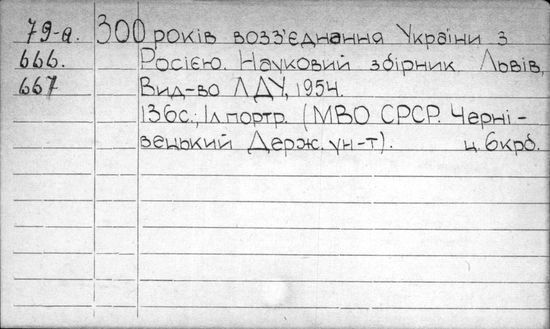 79-а. 300 років возз'єднання України з
666. Росією. Науковий збірник. Львів,
667 Вид-во ЛДУ, 1954.
136с.; 1л портр. (МВО СРСР. Черні-
вецький Держ. ун-т). ц. 6крб.